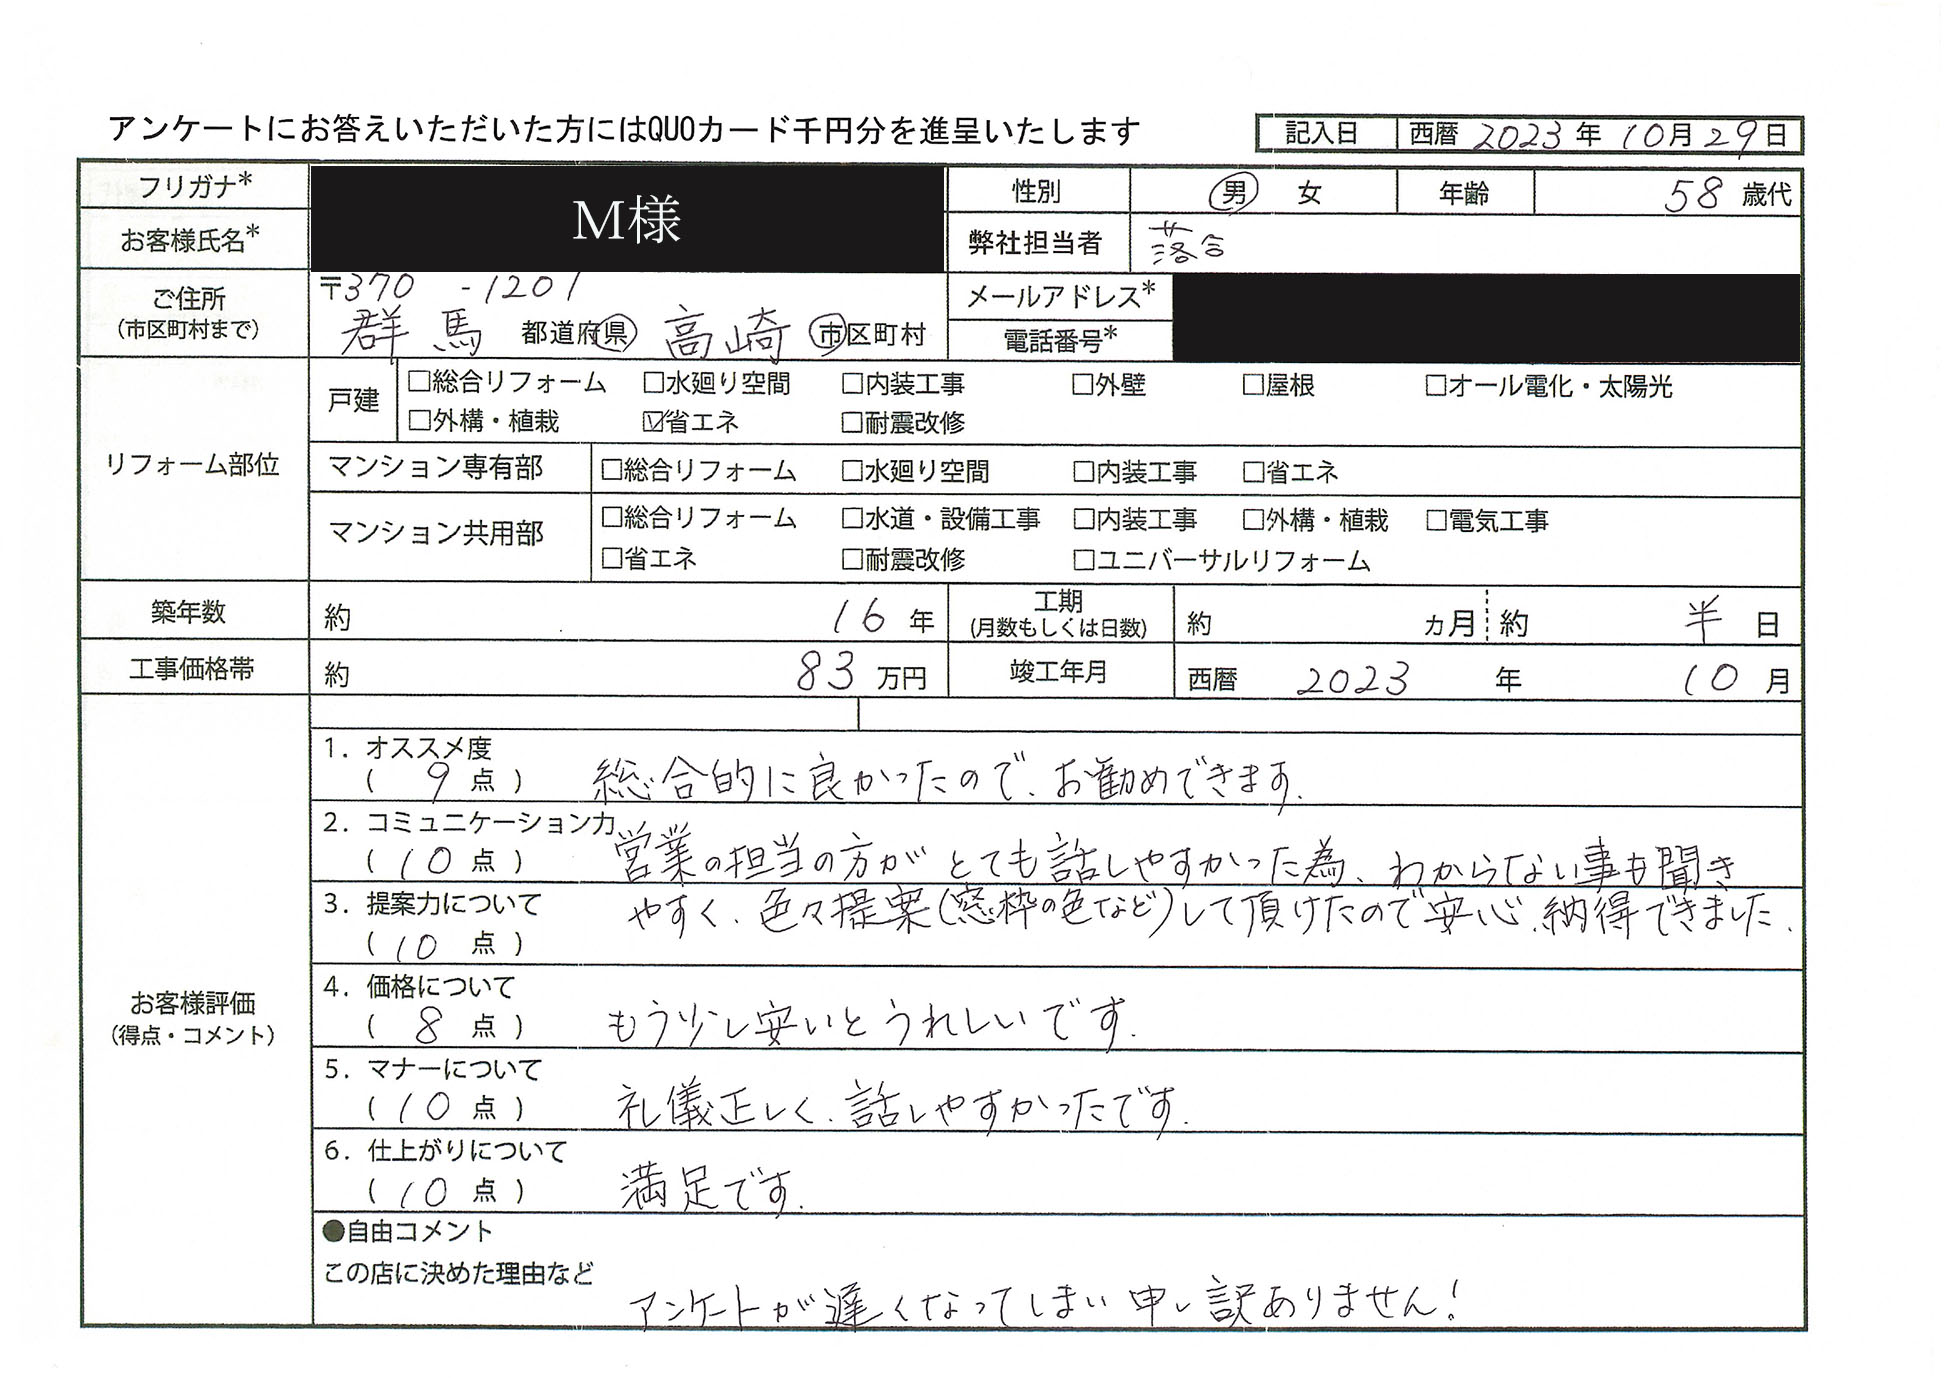 アンケートにお答えいただいた方にはQUOカード千円分を進呈いたします
記入日 西暦 2023 年 10 月 29 日
フリガナ* M様 性別 男 女 年齢 58 歳代
お客様氏名* 弊社担当者 落合
ご住所 〒370-1201 メールアドレス*
(市区町村まで) 群馬 都道府県 高崎 市区町村 電話番号*
リフォーム部位
戸建 □総合リフォーム □水廻り空間 □内装工事 □外壁 □屋根 □オール電化・太陽光
□外構・植栽 ☑省エネ □耐震改修
マンション専有部 □総合リフォーム □水廻り空間 □内装工事 □省エネ
マンション共用部 □総合リフォーム □水道・設備工事 □内装工事 □外構・植栽 □電気工事
□省エネ □耐震改修 □ユニバーサルリフォーム
築年数 約 16 年 工期 (月数もしくは日数) 約 ヵ月 約 半 日
工事価格帯 約 83 万円 竣工年月 西暦 2023 年 10 月
お客様評価
(得点・コメント)
1. オススメ度
( 9 点 ) 総合的に良かったので、お勧めできます.
2. コミュニケーション力
( 10 点 ) 営業の担当の方がとても話しやすかった為、わからない事も聞き
3. 提案力について やすく、色々提案(窓枠の色など)して頂けたので安心、納得できました.
( 10 点 )
4. 価格について
( 8 点 ) もう少し安いとうれしいです.
5. マナーについて
( 10 点 ) 礼儀正しく、話しやすかったです.
6. 仕上がりについて
( 10 点 ) 満足です.
●自由コメント
この店に決めた理由など
アンケートが遅くなってしまい申し訳ありません!